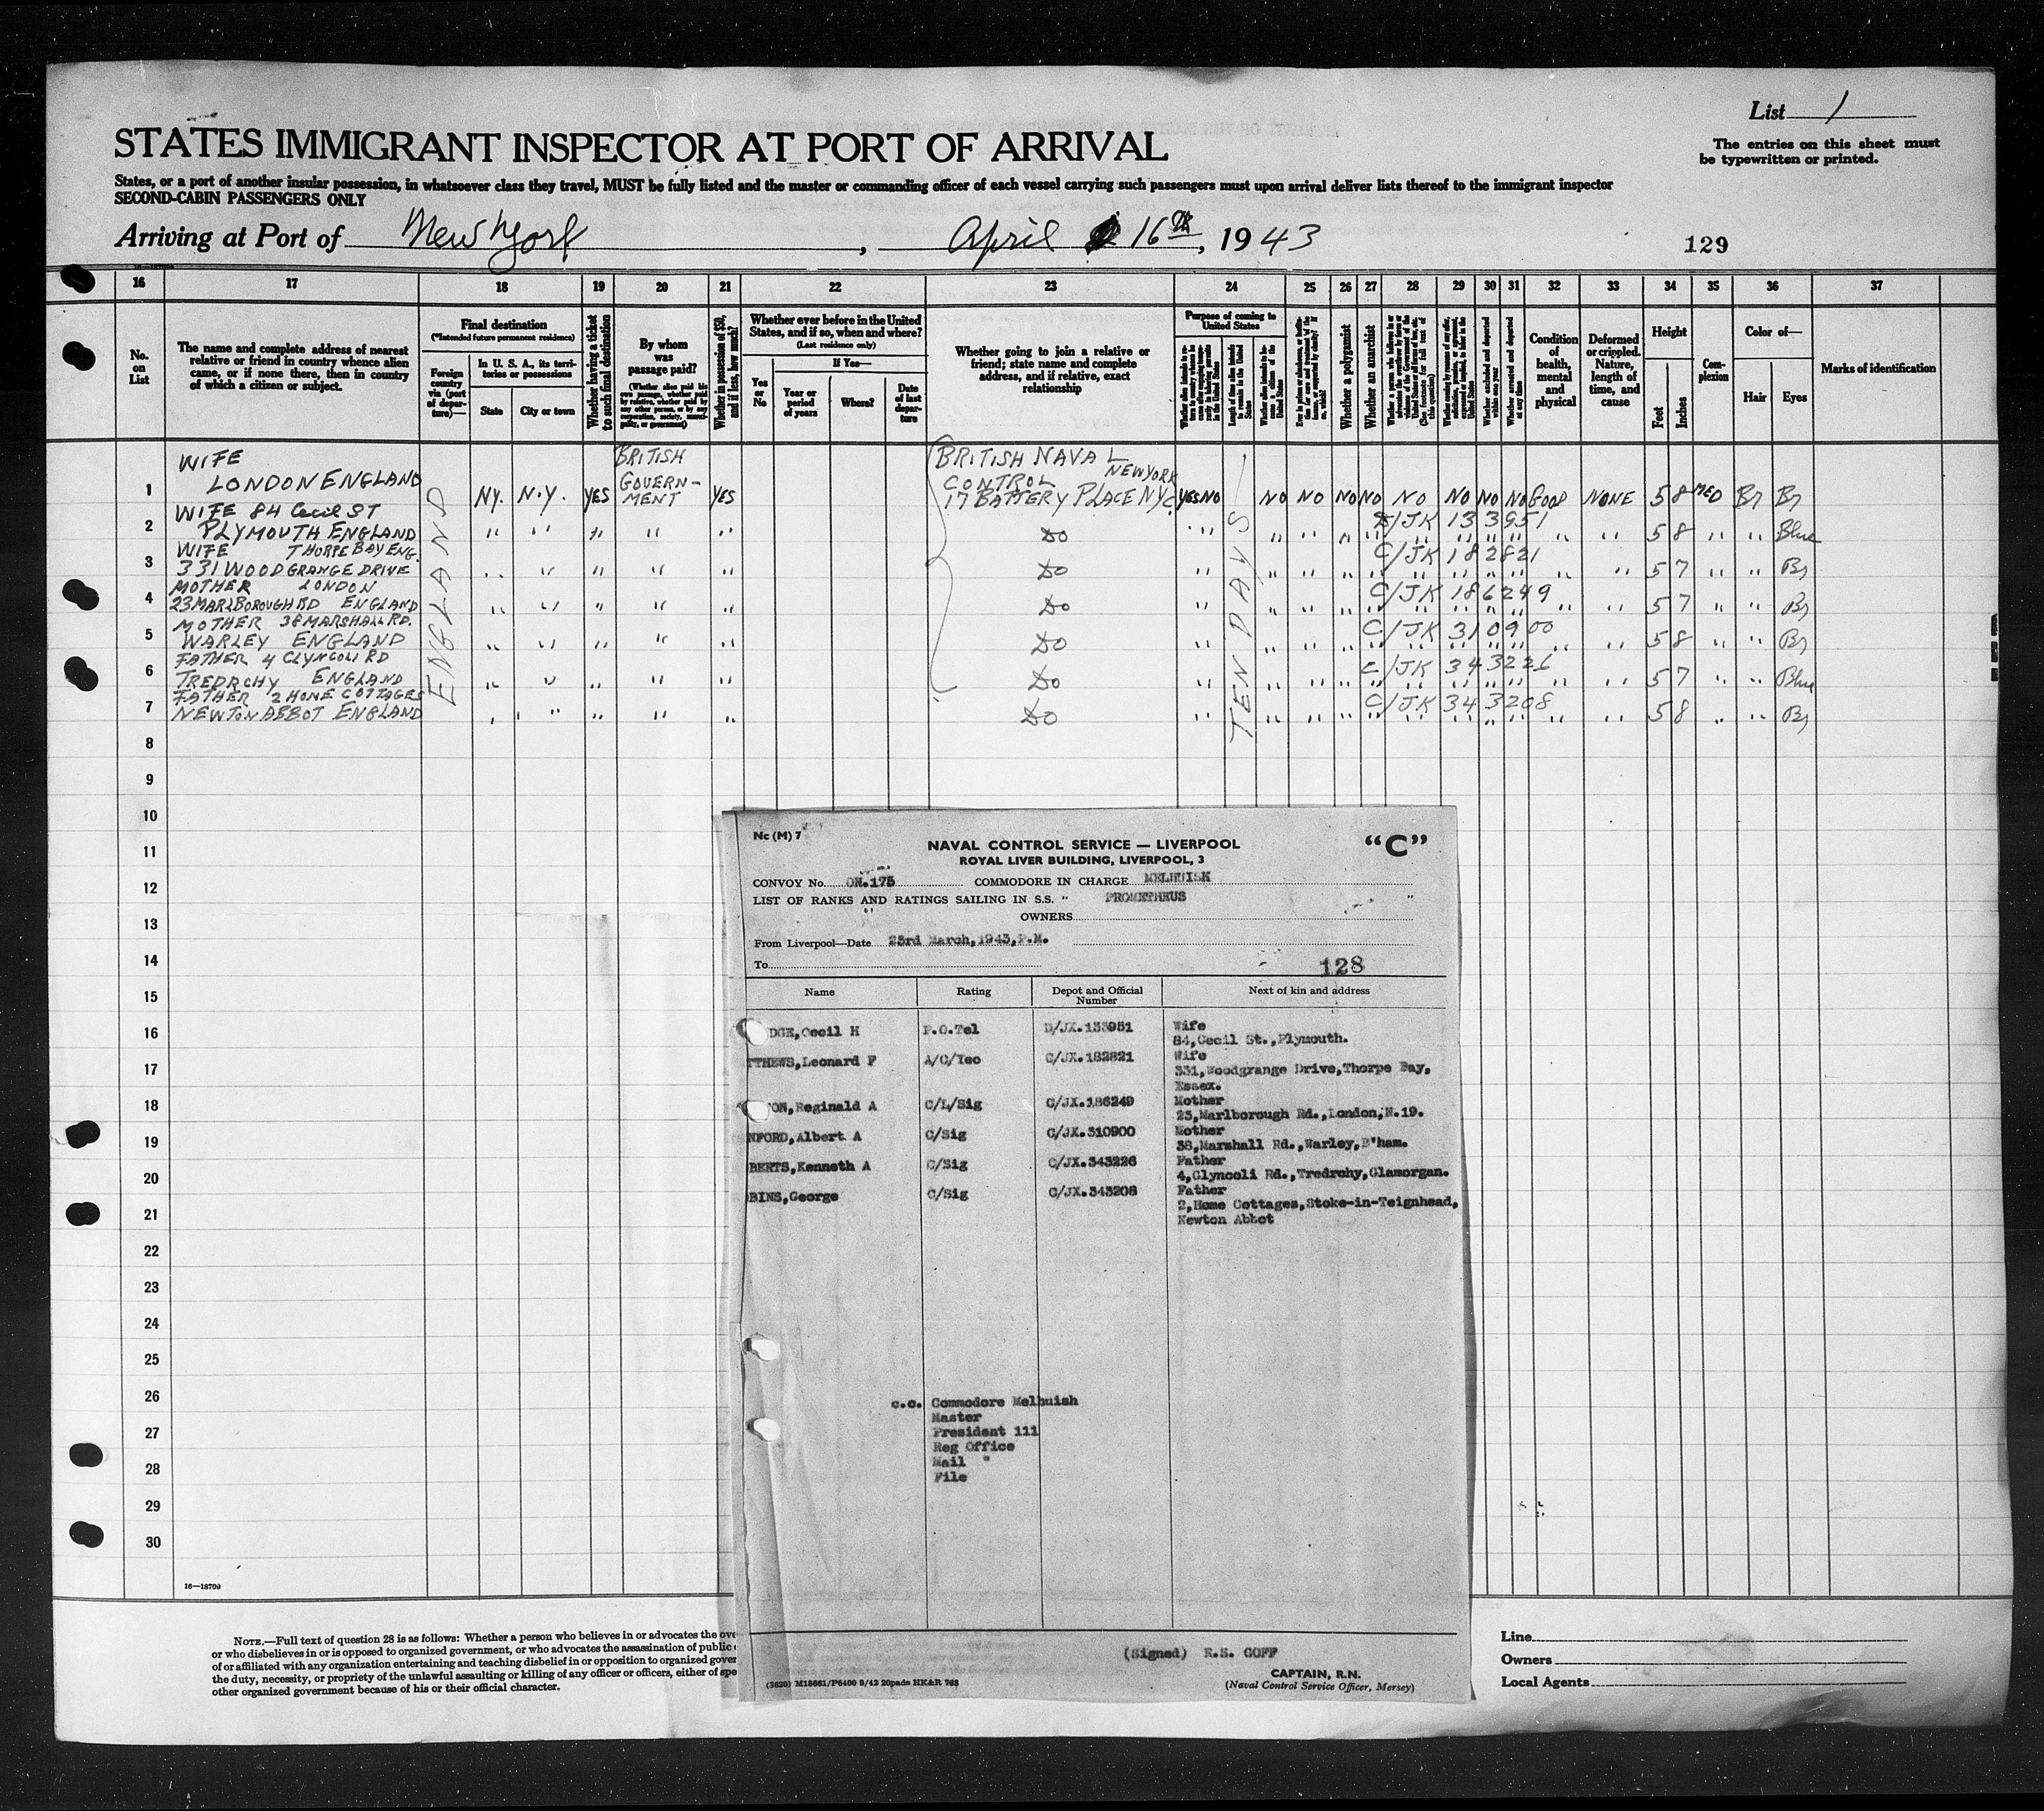 List 1
The entries on this sheet must
be typewritten or printed.
STATES IMMIGRANT INSPECTOR AT PORT OF ARRIVAL
States, or a port of another insular possession, in whatsoever class they travel, MUST be fully listed and the master or commanding officer of each vessel carrying such passengers must upon arrival deliver lists thereof to the immigrant inspector
SECOND-CABIN PASSENGERS ONLY
Arriving at Port of New York, April 16th, 1943
129
16 17 18 19 20 21 22 23 24 25 26 27 28 29 30 31 32 33 34 35 36 37
No. on List
The name and complete address of nearest
relative or friend in country whence alien
came, or if none there, then in country
of which a citizen or subject.
Final destination
(*Intended future permanent residence)
Foreign country via (port of departure)—
In U. S. A., its territories or possessions
State
City or town
Whether having a ticket to such final destination
By whom was passage paid?
(Whether alien paid his own passage, whether paid by relative, whether paid by any other person, or by any corporation, society, municipality, or government)
Whether in possession of $50, and if less, how much?
Whether ever before in the United
States, and if so, when and where?
(Last residence only)
Yes or No
If Yes—
Year or period of years
Where?
Date of last departure
Whether going to join a relative or
friend; state name and complete
address, and if relative, exact
relationship
Purpose of coming to United States
Length of time alien intends to remain in the United States
Whether a polygamist
Whether an anarchist
Whether excluded and deported within one year
Whether arrested and deported at any time
Condition of health, mental and physical
Deformed or crippled. Nature, length of time, and cause
Height
Feet
Inches
Complexion
Color of—
Hair
Eyes
Marks of identification
ENGLAND
TEN DAYS
1 WIFE LONDON ENGLAND NY. N.Y. YES BRITISH GOVERN-MENT YES BRITISH NAVAL CONTROL NEW YORK 17 BATTERY PLACE NYC YES NO NO NO NO NO NO NO NO NO GOOD NONE 5 8 MED Br Br
2 WIFE 84 Cecil ST PLYMOUTH ENGLAND " " " " " DO " " " " D/JK 133951 " " 5 8 " " Blue
3 WIFE THORPE BAY ENG. 331 WOODGRANGE DRIVE " " " " " DO " " " " C/JK 182821 " " 5 7 " " Br
4 MOTHER LONDON 23 MARLBOROUGH RD ENGLAND " " " " " DO " " " " C/JK 186249 " " 5 7 " " Br
5 MOTHER 38 MARSHALL RD. WARLEY ENGLAND " " " " " DO " " " " C/JK 310900 " " 5 8 " " Br
6 FATHER 4 CLYNCOLI RD TREDRCHY ENGLAND " " " " " DO " " " " C/JK 343226 " " 5 7 " " Blue
7 FATHER 2 HOME COTTAGES NEWTON ABBOT ENGLAND " " " " " DO " " " " C/JK 343208 " " 5 8 " " Br
8
9
10
11
12
13
14
15
16
17
18
19
20
21
22
23
24
25
26
27
28
29
30
16—18709
Nc (M) 7
NAVAL CONTROL SERVICE — LIVERPOOL
"C"
ROYAL LIVER BUILDING, LIVERPOOL, 3
CONVOY No. ON.175 COMMODORE IN CHARGE MELHUISH
LIST OF RANKS AND RATINGS SAILING IN S.S. " PROMETHEUS "
OWNERS
From Liverpool—Date 23rd March,1943,P.M.
To
128
Name Rating Depot and Official Number Next of kin and address
DGE,Cecil H P.O.Tel D/JX.133951 Wife
84,Cecil St.,Plymouth.
TTHEWS,Leonard F A/C/Yeo C/JX.182821 Wife
331,Woodgrange Drive,Thorpe Bay,
Essex.
ON,Reginald A C/L/Sig C/JX.186249 Mother
23,Marlborough Rd.,London,N.19.
NFORD,Albert A C/Sig C/JX.310900 Mother
38,Marshall Rd.,Warley,B'ham.
BERTS,Kenneth A C/Sig C/JX.343226 Father
4,Glyncoli Rd.,Tredrchy,Glamorgan.
BINS,George C/Sig C/JX.343208 Father
2,Home Cottages,Stoke-in-Teignhead,
Newton Abbot
c.c. Commodore Melhuish
Master
President 111
Reg Office
Mail "
File
(Signed) R.S. GOFF
CAPTAIN, R.N.
(Naval Control Service Officer, Mersey)
(3620) M18661/P6400 9/42 20pads HK&R 763
NOTE.—Full text of question 28 is as follows: Whether a person who believes in or advocates the ove
or who disbelieves in or is opposed to organized government, or who advocates the assassination of public
of or affiliated with any organization entertaining and teaching disbelief in or opposition to organized gover
the duty, necessity, or propriety of the unlawful assaulting or killing of any officer or officers, either of spe
other organized government because of his or their official character.
Line
Owners
Local Agents